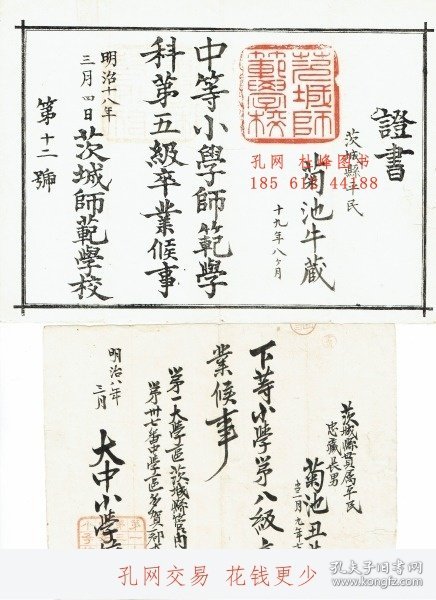 證書
茨城縣平民
菊池牛蔵
十九年八ヶ月
茨城師範學校
中等小學師範學
科第五級卒業候事
明治十八年
三月四日
茨城師範學校
第十二號
孔网 杜峰图书
茨城縣貫属平民
忠蔵長男
菊池丑
下等小學第八級
業候事
第一大學區茨城縣管内
第卅七番中學區多賀郡
明治八年
三月
大中小學
孔网交易 花钱更少
孔夫子旧书网
www.kongfz.com